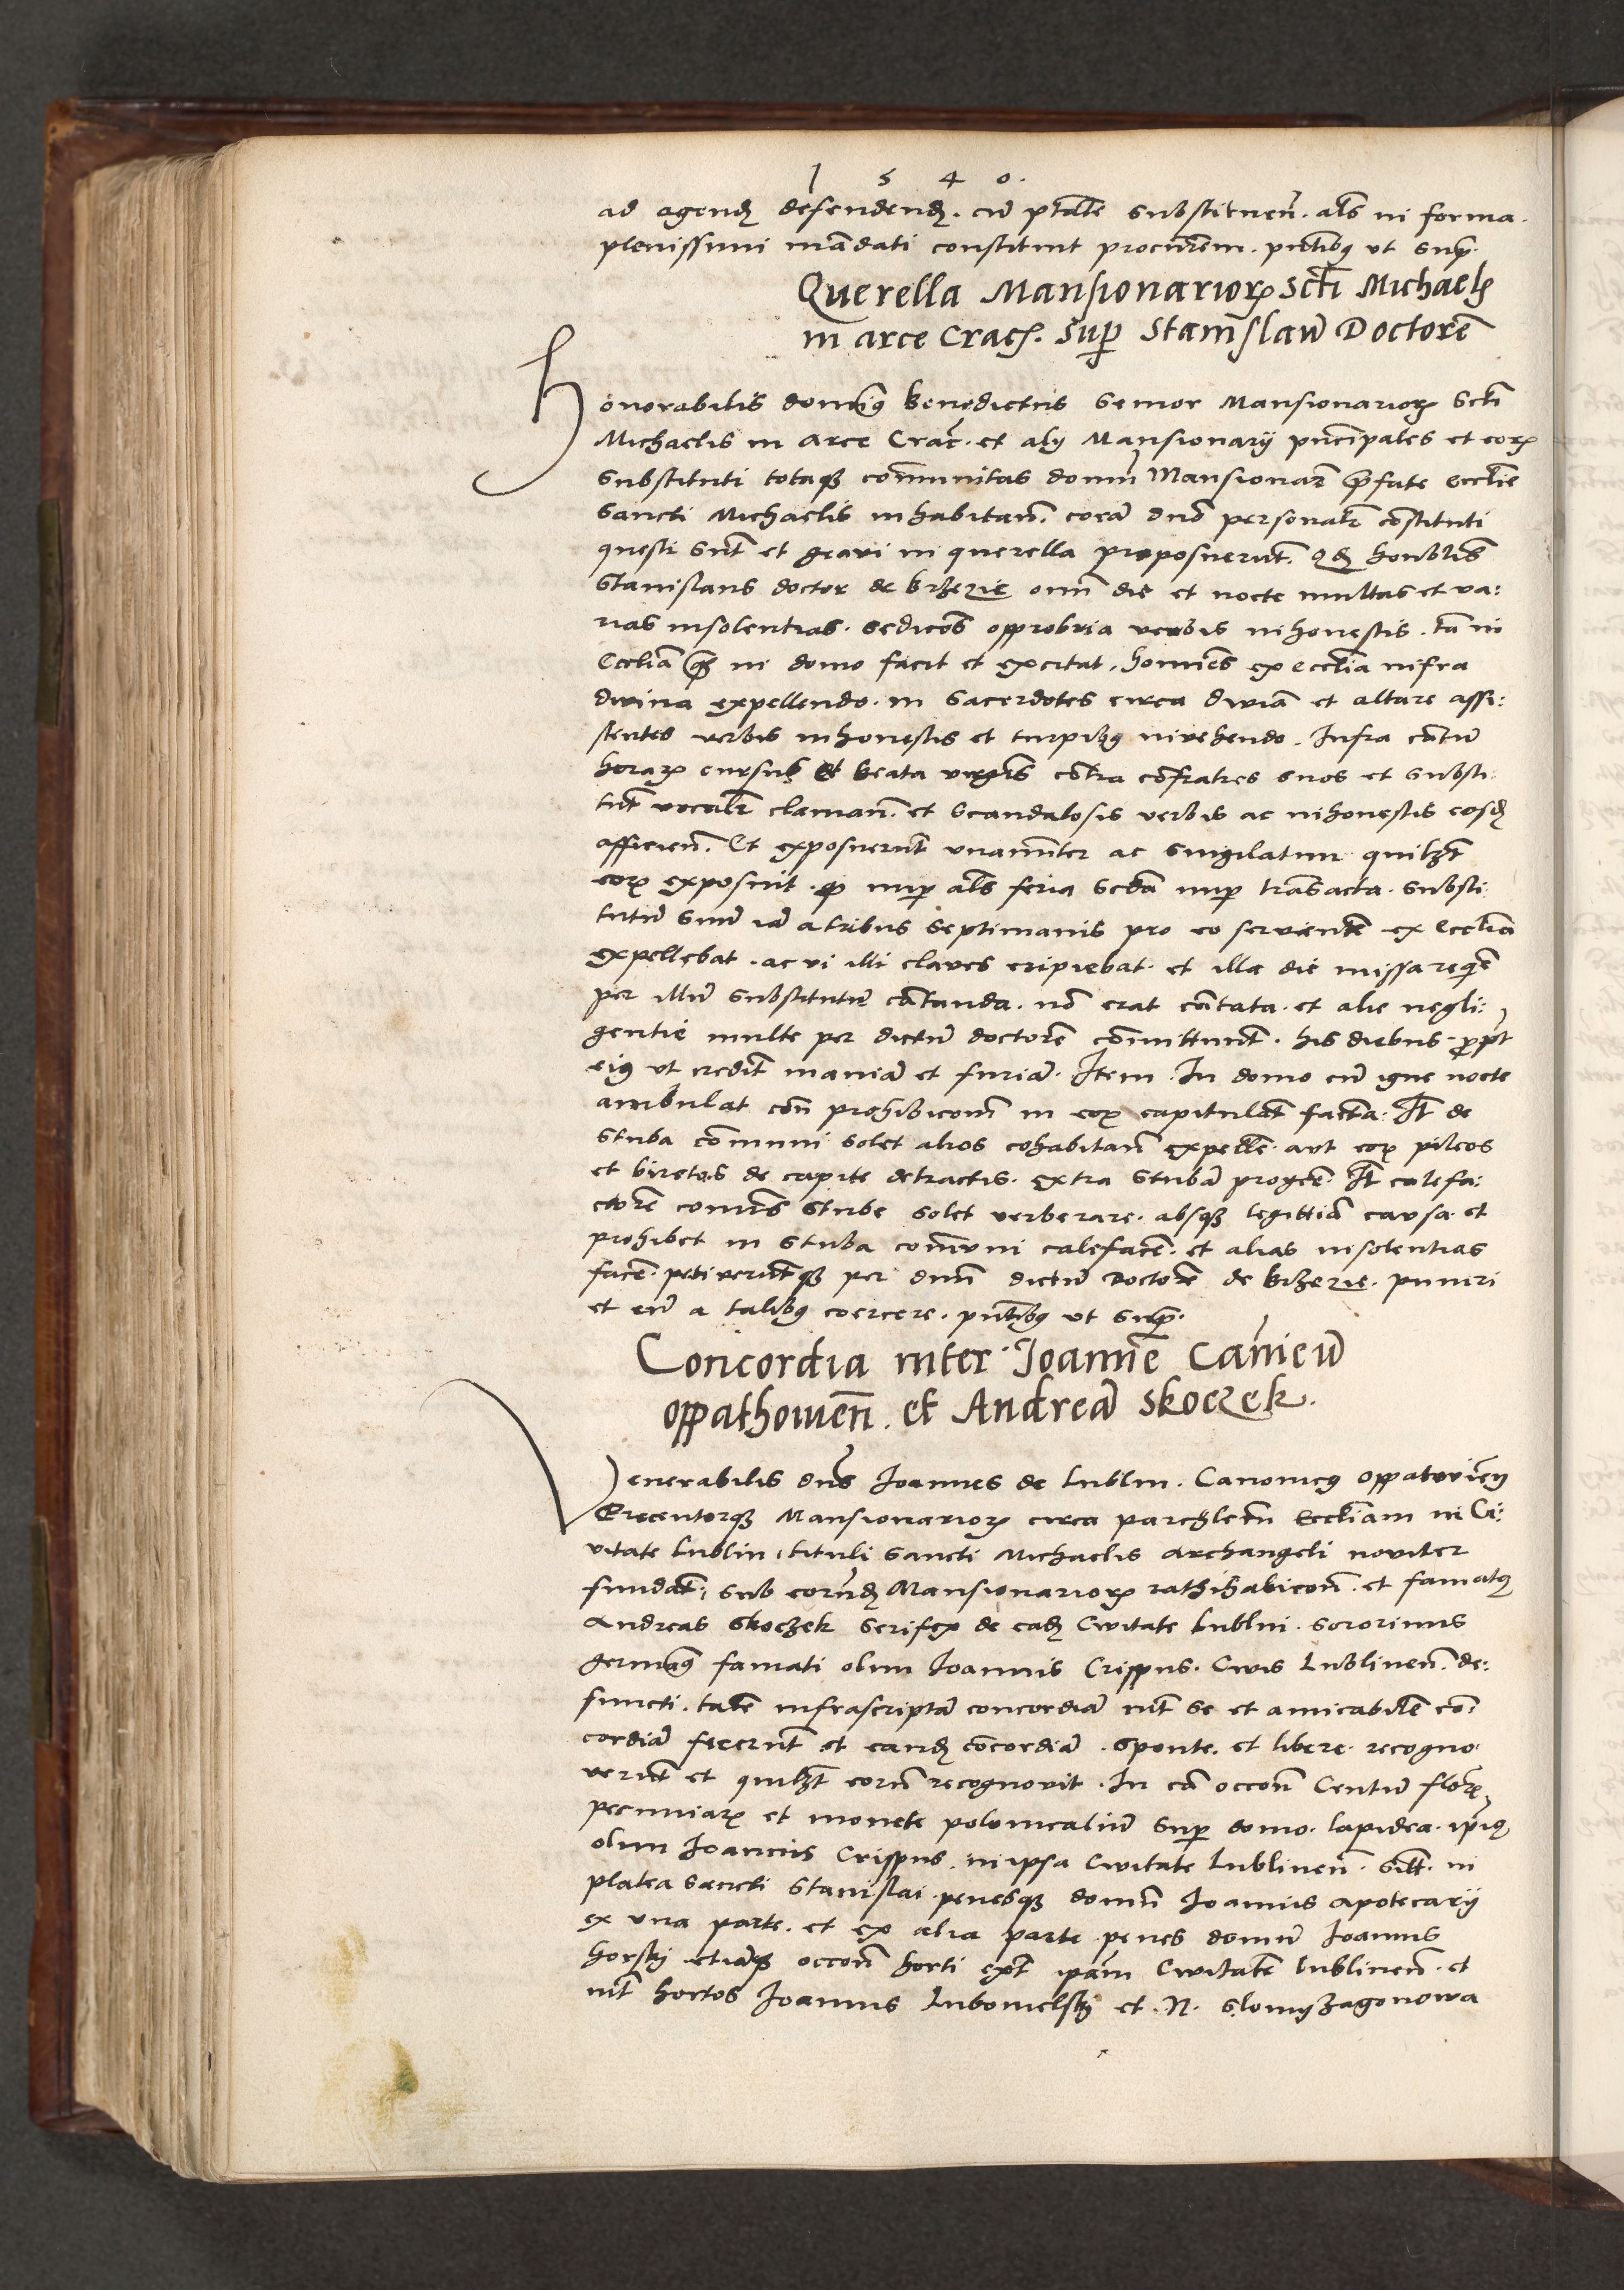 1 5 4 0.
ad agend defendend. cu ptate substituen. als in forma.
plenissimi madati constituit procurem. pntibus ut supra.
Querella Mansionariorum scti Michaelis
in arce Crac. super Stanislau Doctore
Honorabilis dominus Benedictus Senior Mansionariorum Scti
Michaelis in Arce Crac. et alij Mansionarij principales et eorum
substituti totaque communitas domus Mansionar prefate Ecclie
Sancti Michaelis inhabitan. cora dno personalr constituti
questi sunt et gravi in querella proposuerunt. Quod honoblis
Stanislaus doctor de Brzezie omni die et nocte multas et va:
rias insolentias. sedicons opprobria verbis inhonestis. ta in
Ecclia quam in domo facit et excitat. homines ex ecclia infra
divina expellendo. in sacerdotes circa divia et altare assi:
stentes verbis inhonestis et turpibus invehendo. Infra cantu
horarum cursus et beata virginis contra confratres suos et substi:
tut vocalr claman. et scandalosis verbis ac inhonestis eosdem
afficien. Et exposuerunt unanimiter ac singilatim quilibet
eorum exposuit. quod nuper als feria secda nuper transacta. substi:
tutu suum iam a tribus septimanis pro eo serviente ex ecclia
expellebat. ac vi illi claves eripiebat. et illa die missa requie
per illum substitutu cantanda. non erat cantata. et alie negli:
gentie multe per dictum doctore committunt. his diebus. propt
eius ut credit mania et furia. Item. In domo cu igne nocte
ambulat con prohibicom in eorum capitulat facta. It de
stuba communi solet alios cohabitan expelle. aut eorum pileos
et biretos de capite detractis. extra stuba progere. It calefa:
ctore comunis stube solet verberare. absque legittia causa. et
prohibet in stuba communi calefacere. et alias insolentias
facere. petiveruntque per dnm dictum Doctore de Brzezie. puniri
et eum a talibus coercere. pntibus ut supra.
Concordia inter Joanne Canicu
oppathovien. et Andrea Skoczek.
Venerabilis dns Joannes de Lublin. Canonicus oppatovien
Precentorque Mansionariorum circa parochialem Eccliam in Ci:
vitate Lublin, tituli Sancti Michaelis Archangeli noviter
fundat, sub eorundem Mansionariorum rathihabicon. et famatus
Andreas Skoczek Serifex de eadem Civitate Lublin. sororinus
germanus famati olim Joannis Crispus. Civis Lublinen. de:
functi. tale infrascripta concordia int se et amicabile con:
cordia fecerunt et eandem concordia. sponte. et libere. recogno:
verunt et quilibet eorum recognovit. In ca occon Centum floren
pecuniarum et monete polonicalium super domo. lapidea. ipsius
olim Joannis Crispus. in ipsa Civitate Lublinen. sitt. in
platea Sancti Stanislai. penesque domum Joannis Apotecarij
ex una parte. et ex alia parte penes domum Joannis
horskij etiamque occon horti ext ipam Civitate Lublinen. et
int hortos Joannis Lubomelskij et. N. Slomijzagonowa